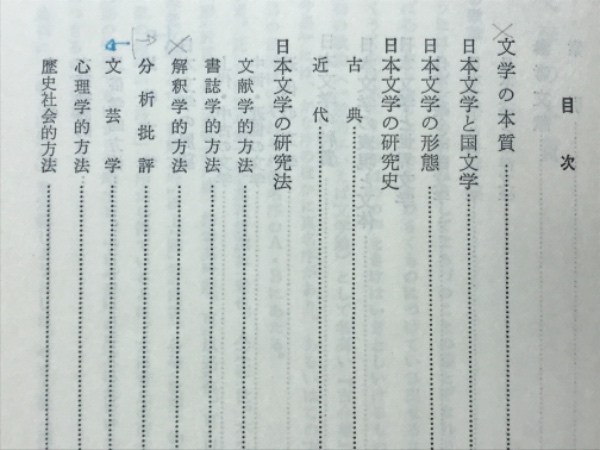 目次
文学の本質
日本文学と国文学
日本文学の形態
日本文学の研究史
古典
近代
日本文学の研究法
文献学的方法
書誌学的方法
解釈学的方法
分析批評
文芸学
心理学的方法
歴史社会的方法